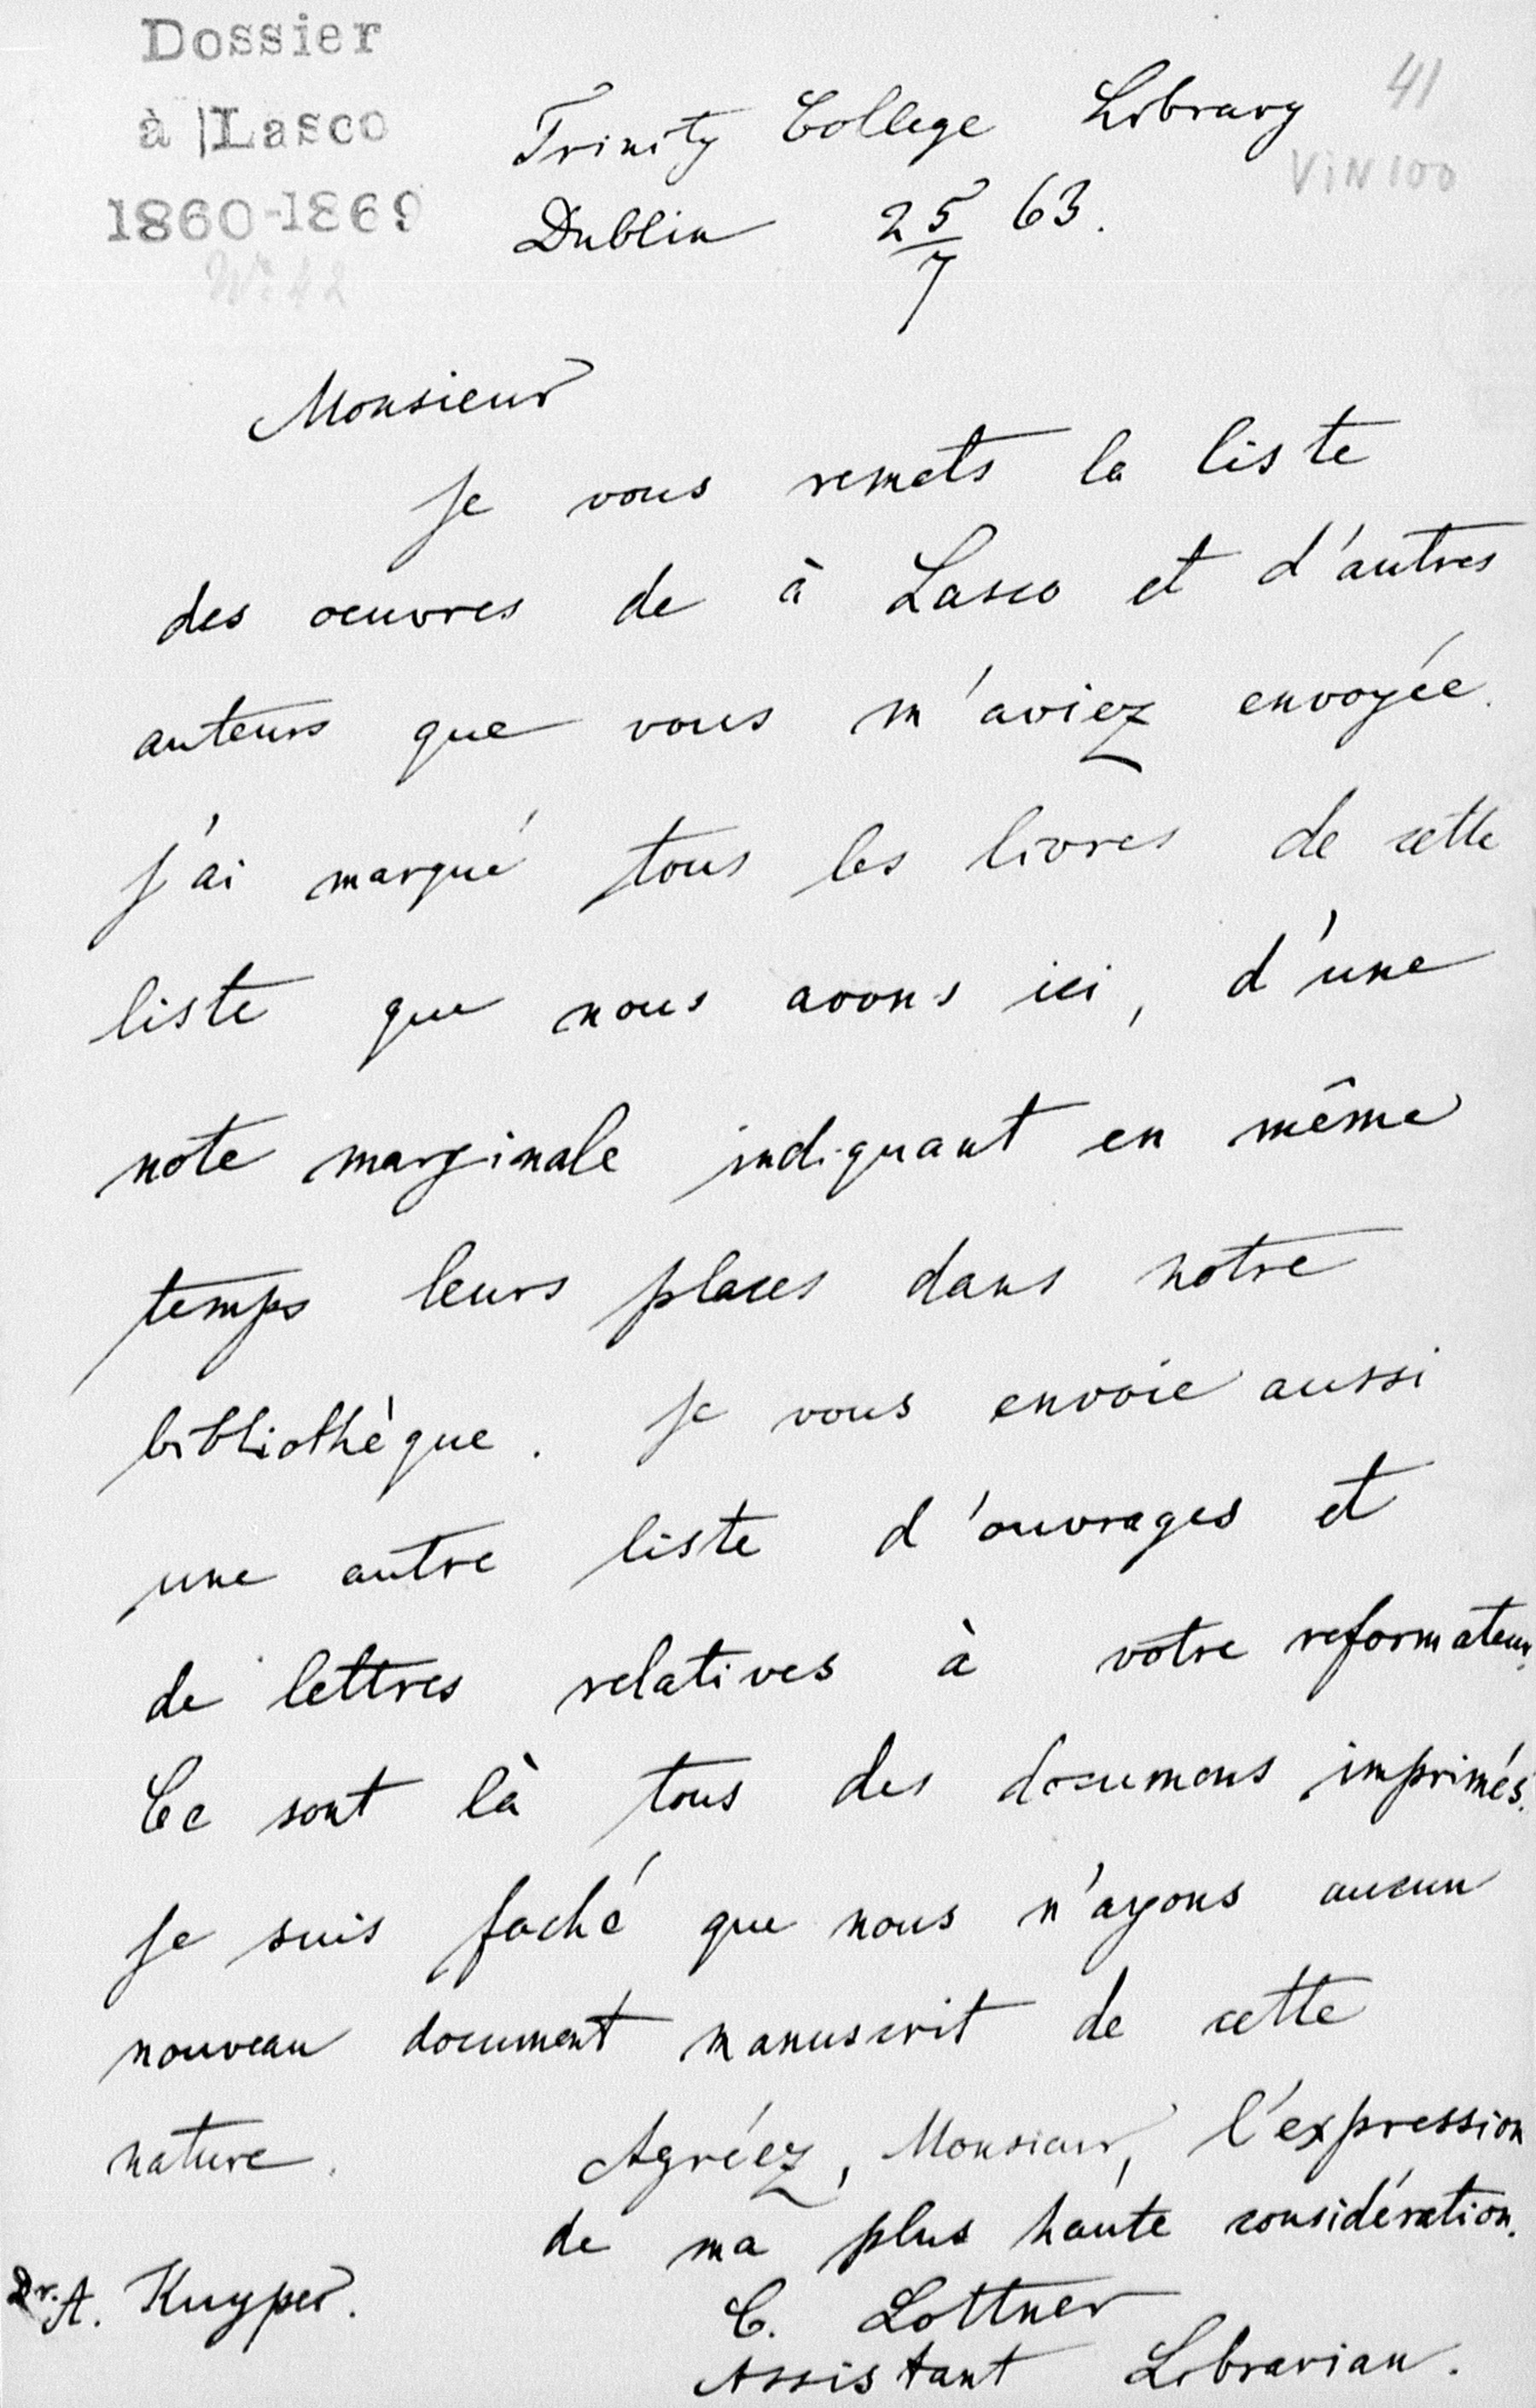 Dossier
à Lasco
1860-1869
No 42
41
VIN 100
Trinity College Library
Dublin 25/7 63.
Monsieur
Je vous remets la liste
des oeuvres de à Lasco et d'autres
auteurs que vous m'aviez envoyée.
J'ai marqué tous les livres de cette
liste que nous avons ici, d'une
note marginale indiquant en même
temps leurs places dans notre
bibliothèque. Je vous envoie aussi
une autre liste d'ouvrages et
de lettres relatives à votre reformateur.
Ce sont là tous des documens imprimés.
Je suis faché que nous n'ayons aucun
nouveau document manuscrit de cette
nature. Agréez, Monsieur, l'expression
de ma plus haute considération.
Dr. A. Kuyper.
C. Lottner
Assistant Librarian.